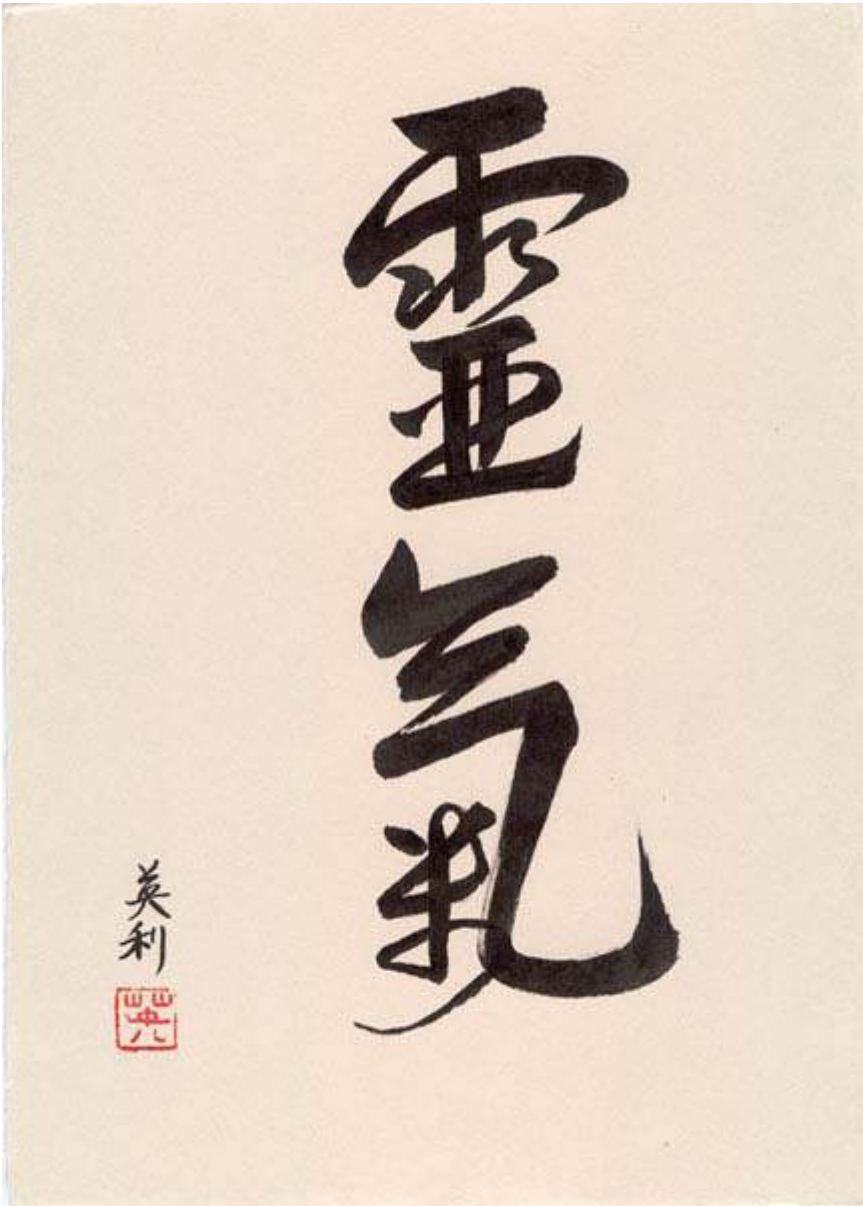 靈氣
英利
英